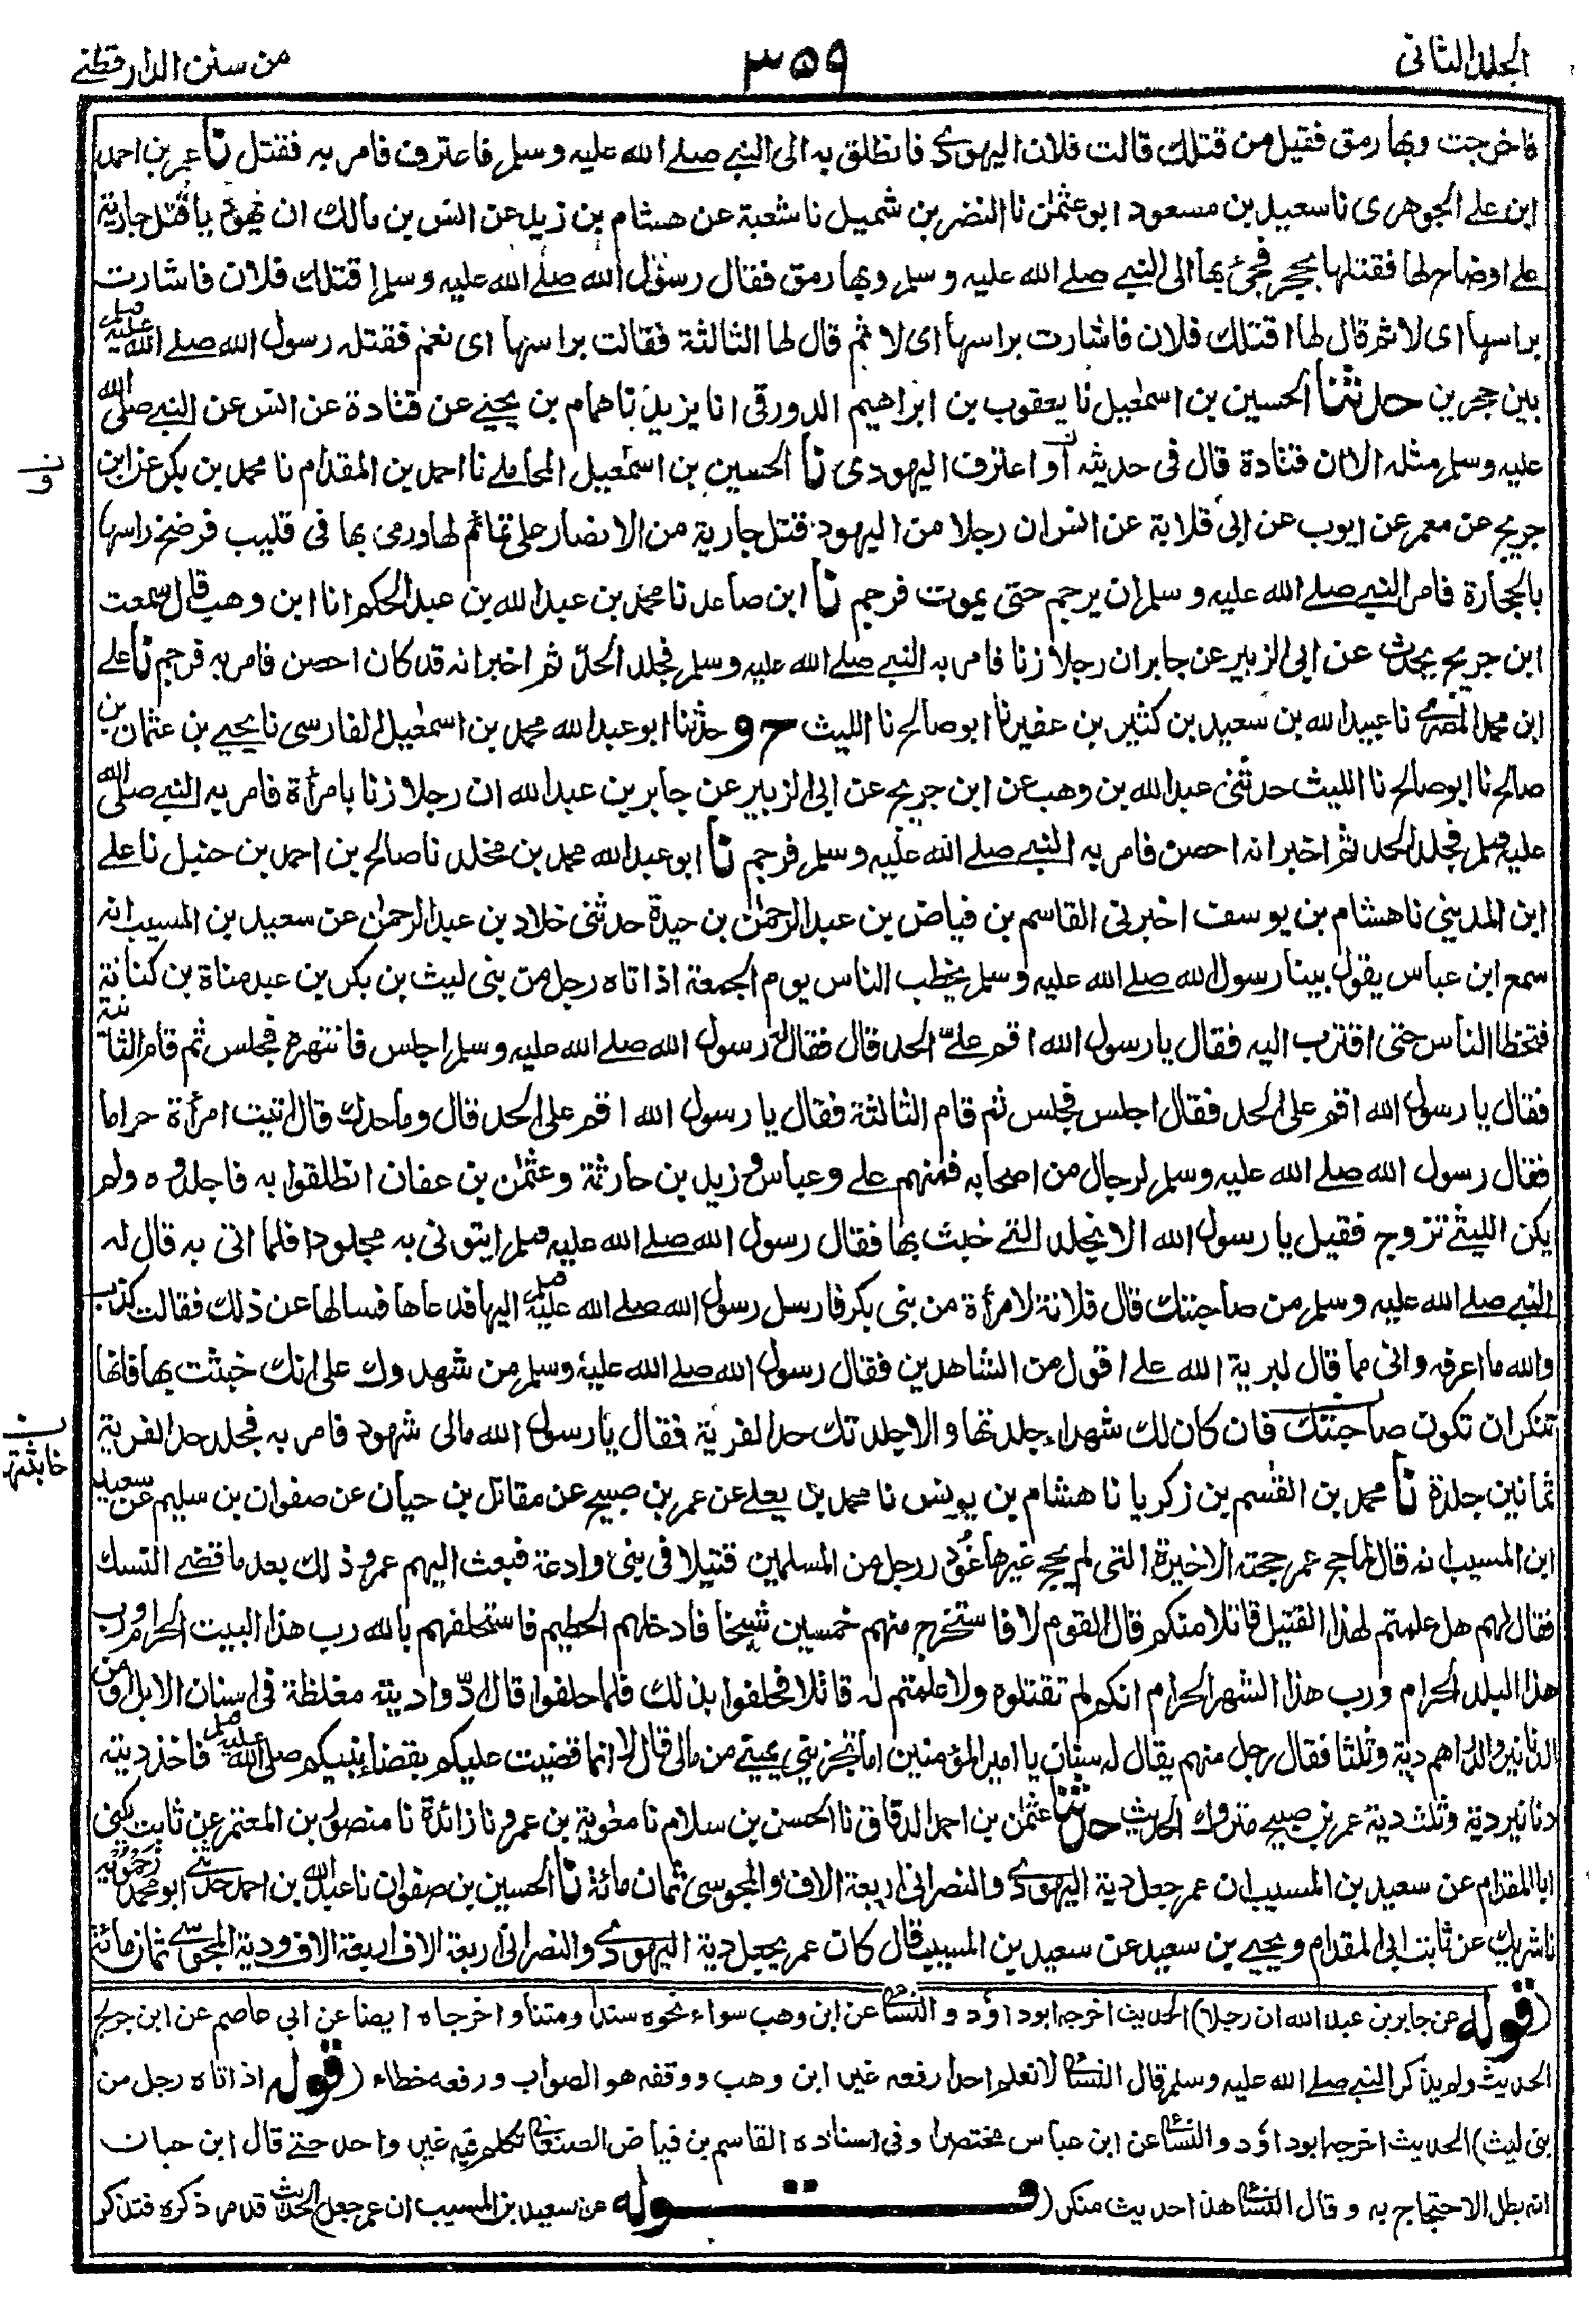 المجلد الثانى
٣٥٩
من سنن الدارقطنے
فاخرجت وبها رمق فقيل من قتلك قالت فلان اليهودى فانطلق به الى النبے صلے الله عليه وسلم فاعترف فامر به فقتل نا عمر بن احمد
ابن علے الجوهرى نا سعيد بن مسعود ابو عثمٰن نا النضر بن شميل نا شعبة عن هشام بن زيد عن انس بن مالك ان يهوديا قتل جارية
علے اوضاح لها فقتلها بحجر فجئ بها الى النبے صلے الله عليه وسلم وبها رمق فقال رسول الله صلے الله عليه وسلم اقتلك فلان فاشارت
براسها اى لا ثم قال لها اقتلك فلان فاشارت براسها اى لا ثم قال لها الثالثة فقالت براسها اى نعم فقتله رسول الله صلے الله عليه وسلم
بين حجرين حدثنا الحسين بن اسمٰعيل نا يعقوب بن ابراهيم الدورقى انا يزيد نا همام بن يحيے عن قتادة عن انس عن النبے صلى الله
عليه وسلم مثله الا ان قتادة قال فى حديثه أو اعترف اليهودى نا الحسين بن اسمٰعيل المحاملے نا احمد بن المقدام نا محمد بن بكر عن ابن
ن و
جريج عن معمر عن ايوب عن ابى قلابة عن انس ان رجلا من اليهود قتل جارية من الانصار على تمائم لها ورمى بها فى قليب فرضخ راسها
بالحجارة فامر النبے صلے الله عليه وسلم ان يرجم حتى يموت فرجم نا ابن صاعد نا محمد بن عبد الله بن عبد الحكم انا ابن وهب قال سمعت
ابن جريج يحدث عن ابى الزبير عن جابر ان رجلا زنا فامر به النبے صلے الله عليه وسلم فجلد الحد ثم اخبر انه قد كان احصن فامر به فرجم نا علے
ابن محمد المصرى نا عبيد الله بن سعيد بن كثير بن عفير نا ابو صالح نا الليث ح و حدثنا ابو عبد الله محمد بن اسمٰعيل الفارسى نا يحيے بن عثمان بن
صالح نا ابو صالح نا الليث حدثنى عبد الله بن وهب عن ابن جريج عن ابى الزبير عن جابر بن عبد الله ان رجلا زنا بامرأة فامر به النبے صلى الله
عليه وسلم فجلد الحد ثم اخبر انه احصن فامر به النبے صلے الله عليه وسلم فرجم نا ابو عبد الله محمد بن مخلد نا صالح بن احمد بن حنبل نا علے
ابن المدينى نا هشام بن يوسف اخبرنى القاسم بن فياض بن عبد الرحمٰن بن حيدة حدثنى خلاد بن عبد الرحمٰن عن سعيد بن المسيب انه
سمع ابن عباس يقول بينا رسول الله صلے الله عليه وسلم يخطب الناس يوم الجمعة اذ اتاه رجل من بنى ليث بن بكر بن عبد مناة بن كنانة
فتخطا الناس حتى اقترب اليه فقال يا رسول الله اقم علىّ الحد قال فقال له رسول الله صلے الله عليه وسلم اجلس فانتهره فجلس ثم قام الثانية
فقال يا رسول الله اقم على الحد فقال اجلس فجلس ثم قام الثالثة فقال يا رسول الله اقم على الحد قال وما حدك قال اتيت امرأة حراما
فقال رسول الله صلے الله عليه وسلم لرجال من اصحابه فمنهم علے وعباس وزيد بن حارثة وعثمٰن بن عفان انطلقوا به فاجلدوه ولم
يكن الليثے تزوج فقيل يا رسول الله الا نجلد التے خبث بها فقال رسول الله صلے الله عليه وسلم ايتونى به مجلودا فلما اتى به قال له
النبے صلے الله عليه وسلم من صاحبتك قال فلانة لامرأة من بنى بكر فارسل رسول الله صلے الله عليه وسلم اليها فدعاها فسالها عن ذلك فقالت كذب
والله ما اعرفه وانى مما قال لبرية الله علے اقول من الشاهدين فقال رسول الله صلے الله عليه وسلم من شهدوك على انك خبثت بها فانها
تنكر ان تكون صاحبتك فان كان لك شهداء جلدتها والا جلدتك حد الفرية فقال يا رسول الله مالى شهود فامر به فجلد حد الفرية
ن خابثتها
ثمانين جلدة نا محمد بن القٰسم بن زكريا نا هشام بن يونس نا محمد بن يعلے عن عمر بن صبيح عن مقاتل بن حيان عن صفوان بن سليم عن سعيد
ابن المسيب انه قال لما حج عمر حجته الاخيرة التى لم يحج غيرها غودر رجل من المسلمين قتيلا فى بنى وادعة فبعث اليهم عمر وذلك بعد ما قضے النسك
فقال لهم هل علمتم لهذا القتيل قاتلا منكم قال القوم لا فاستخرج منهم خمسين شيخا فادخلهم الحطيم فاستحلفهم بالله رب هذا البيت الحرام ورب
هذا البلد الحرام ورب هذا الشهر الحرام انكم لم تقتلوه ولا علمتم له قاتلا فحلفوا بذلك فلما حلفوا قال ادّوا ديته مغلظة فى اسنان الابل او من
الدنانير والدراهم دية وثلثا فقال رجل منهم يقال له سنان يا امير المؤمنين اما تجزينى يمينے من مالى قال لا انما قضيت عليكم بقضاء نبيكم صلى الله عليه وسلم فاخذ ديته
دنانير دية وثلث دية عمر بن صبيح متروك الحديث حدثنا عثمٰن بن احمد الدقاق نا الحسن بن سلام نا معٰوية بن عمرو نا زائدة نا منصور بن المعتمر عن ثابت يكنى
ابا المقدام عن سعيد بن المسيب ان عمر جعل دية اليهودى والنصرانى اربعة الاف والمجوسى ثمان مائة نا الحسين بن صفوان نا عبد الله بن احمد حدثنے ابو محمد زحمويه
نا شريك عن ثابت ابى المقدام ويحيے بن سعيد عن سعيد بن المسيب قال كان عمر يجعل دية اليهودى والنصرانى اربعة الاف اربعة الاف ودية المجوسے ثمان مائة
(قوله عن جابر بن عبد الله ان رجلا) الحديث اخرجه ابو داؤد والنسائى عن ابن وهب سواء نحوه سندا ومتنا واخرجاه ايضا عن ابى عاصم عن ابن جريج
الحديث ولم يذكر النبے صلے الله عليه وسلم قال النسائى لا نعلم احدا رفعه غير ابن وهب ووقفه هو الصواب ورفعه خطاء (قوله اذ اتاه رجل من
بنى ليث) الحديث اخرجه ابو داؤد والنسائى عن ابن عباس مختصرا وفى اسناده القاسم بن فياض الصنعانى تكلم فيه غير واحد حتے قال ابن حبان
انه بطل الاحتجاج به وقال النسائى هذا حديث منكر (قوله عن سعيد بن المسيب ان عمر جعل) الحديث قد مر ذكره فتذكر